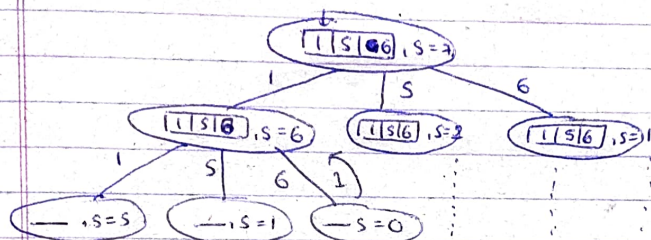 1 5 6 , S=7
1 5 6
1 5 6 , S=6 1 5 6 , S=2 1 5 6 , S=1
1 5 6 1
— , S=5 — , S=1 — S=0